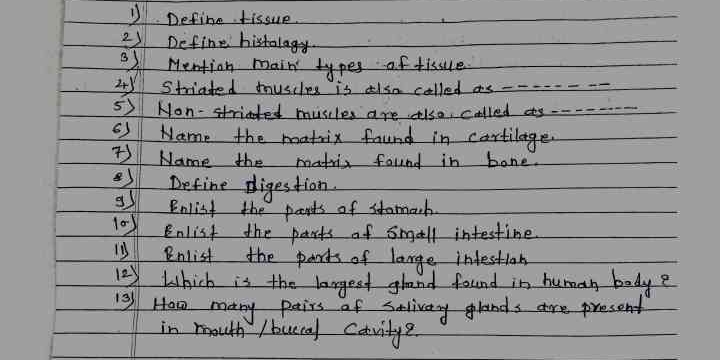 1) Define tissue.
2) Define histology.
3) Mention main types of tissue.
4) Striated muscles is also called as --------
5) Non-striated muscles are also called as --------
6) Name the matrix found in cartilage.
7) Name the matrix found in bone.
8) Define digestion.
9) Enlist the parts of stomach.
10) Enlist the parts of small intestine.
11) Enlist the parts of large intestion
12) Which is the largest gland found in human body?
13) How many pairs of salivary glands are present
in mouth / buccal cavity?